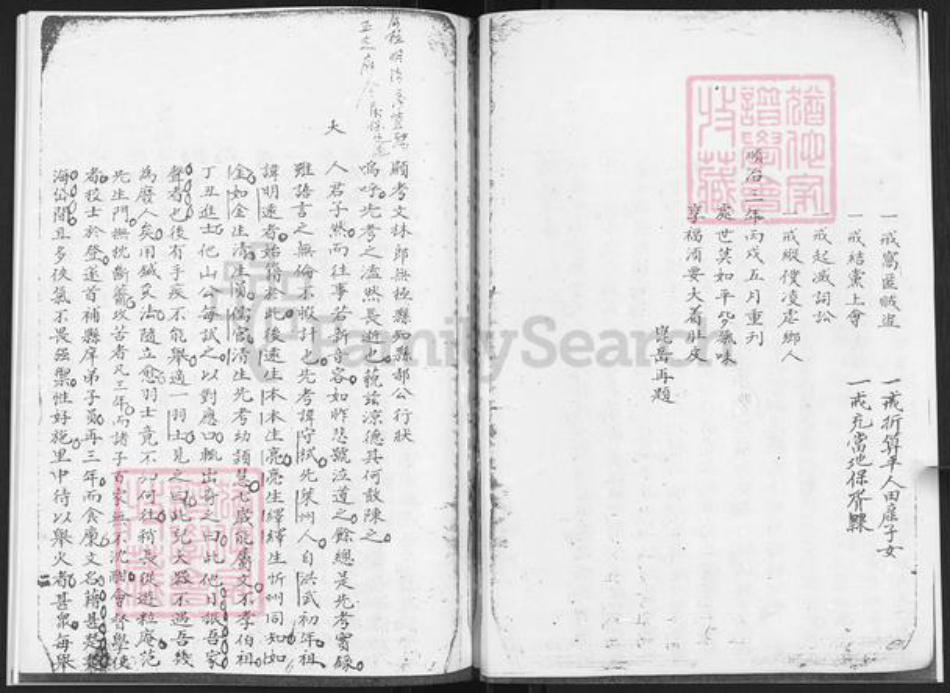 一戒窩匿賊盜
一戒折算平人田產子女
一戒結黨上會
一戒充當地保胥隸
一戒起滅詞訟
一戒縱僕凌虐鄉人
順治三年丙戌五月重刊
處世莫如平心氣味
享福須要大着肚皮
崑岳再題
顯考文林郎無極縣知縣郝公行狀
嗚呼先考之溘然長逝也藐茲涼德其何敢陳之
大人君子然而往事若新音容如昨慧號泣道之餘總是先考實錄
雖語言之無倫不暇計也先考諱守拭先萊州人自洪武初年祖
諱明遠者始籍於此後遠生本本生亮亮生繹繹生忻州同知如
金如金生清生員儒官清生先考幼穎慧七歲能屬文不孝伯祖
丁丑進士他山公每試之以對應口輒出奇之曰此他日振吾家
聲者也後有手疾不能舉適一羽士見之曰此兒大器不過吾幾
為廢人矣用鍼灸法隨立愈羽士竟不知何往稍長從遊粒庵范
先生門撫枕斷虀攻苦者凡三年而諸子百家無不沉酣會督學使
者校士於登遂首補縣庠弟子員再三年而食廩文名藉甚
海岱間且多俠氣不畏強禦性好施里中待以舉火者甚眾每舉
FamilySearch